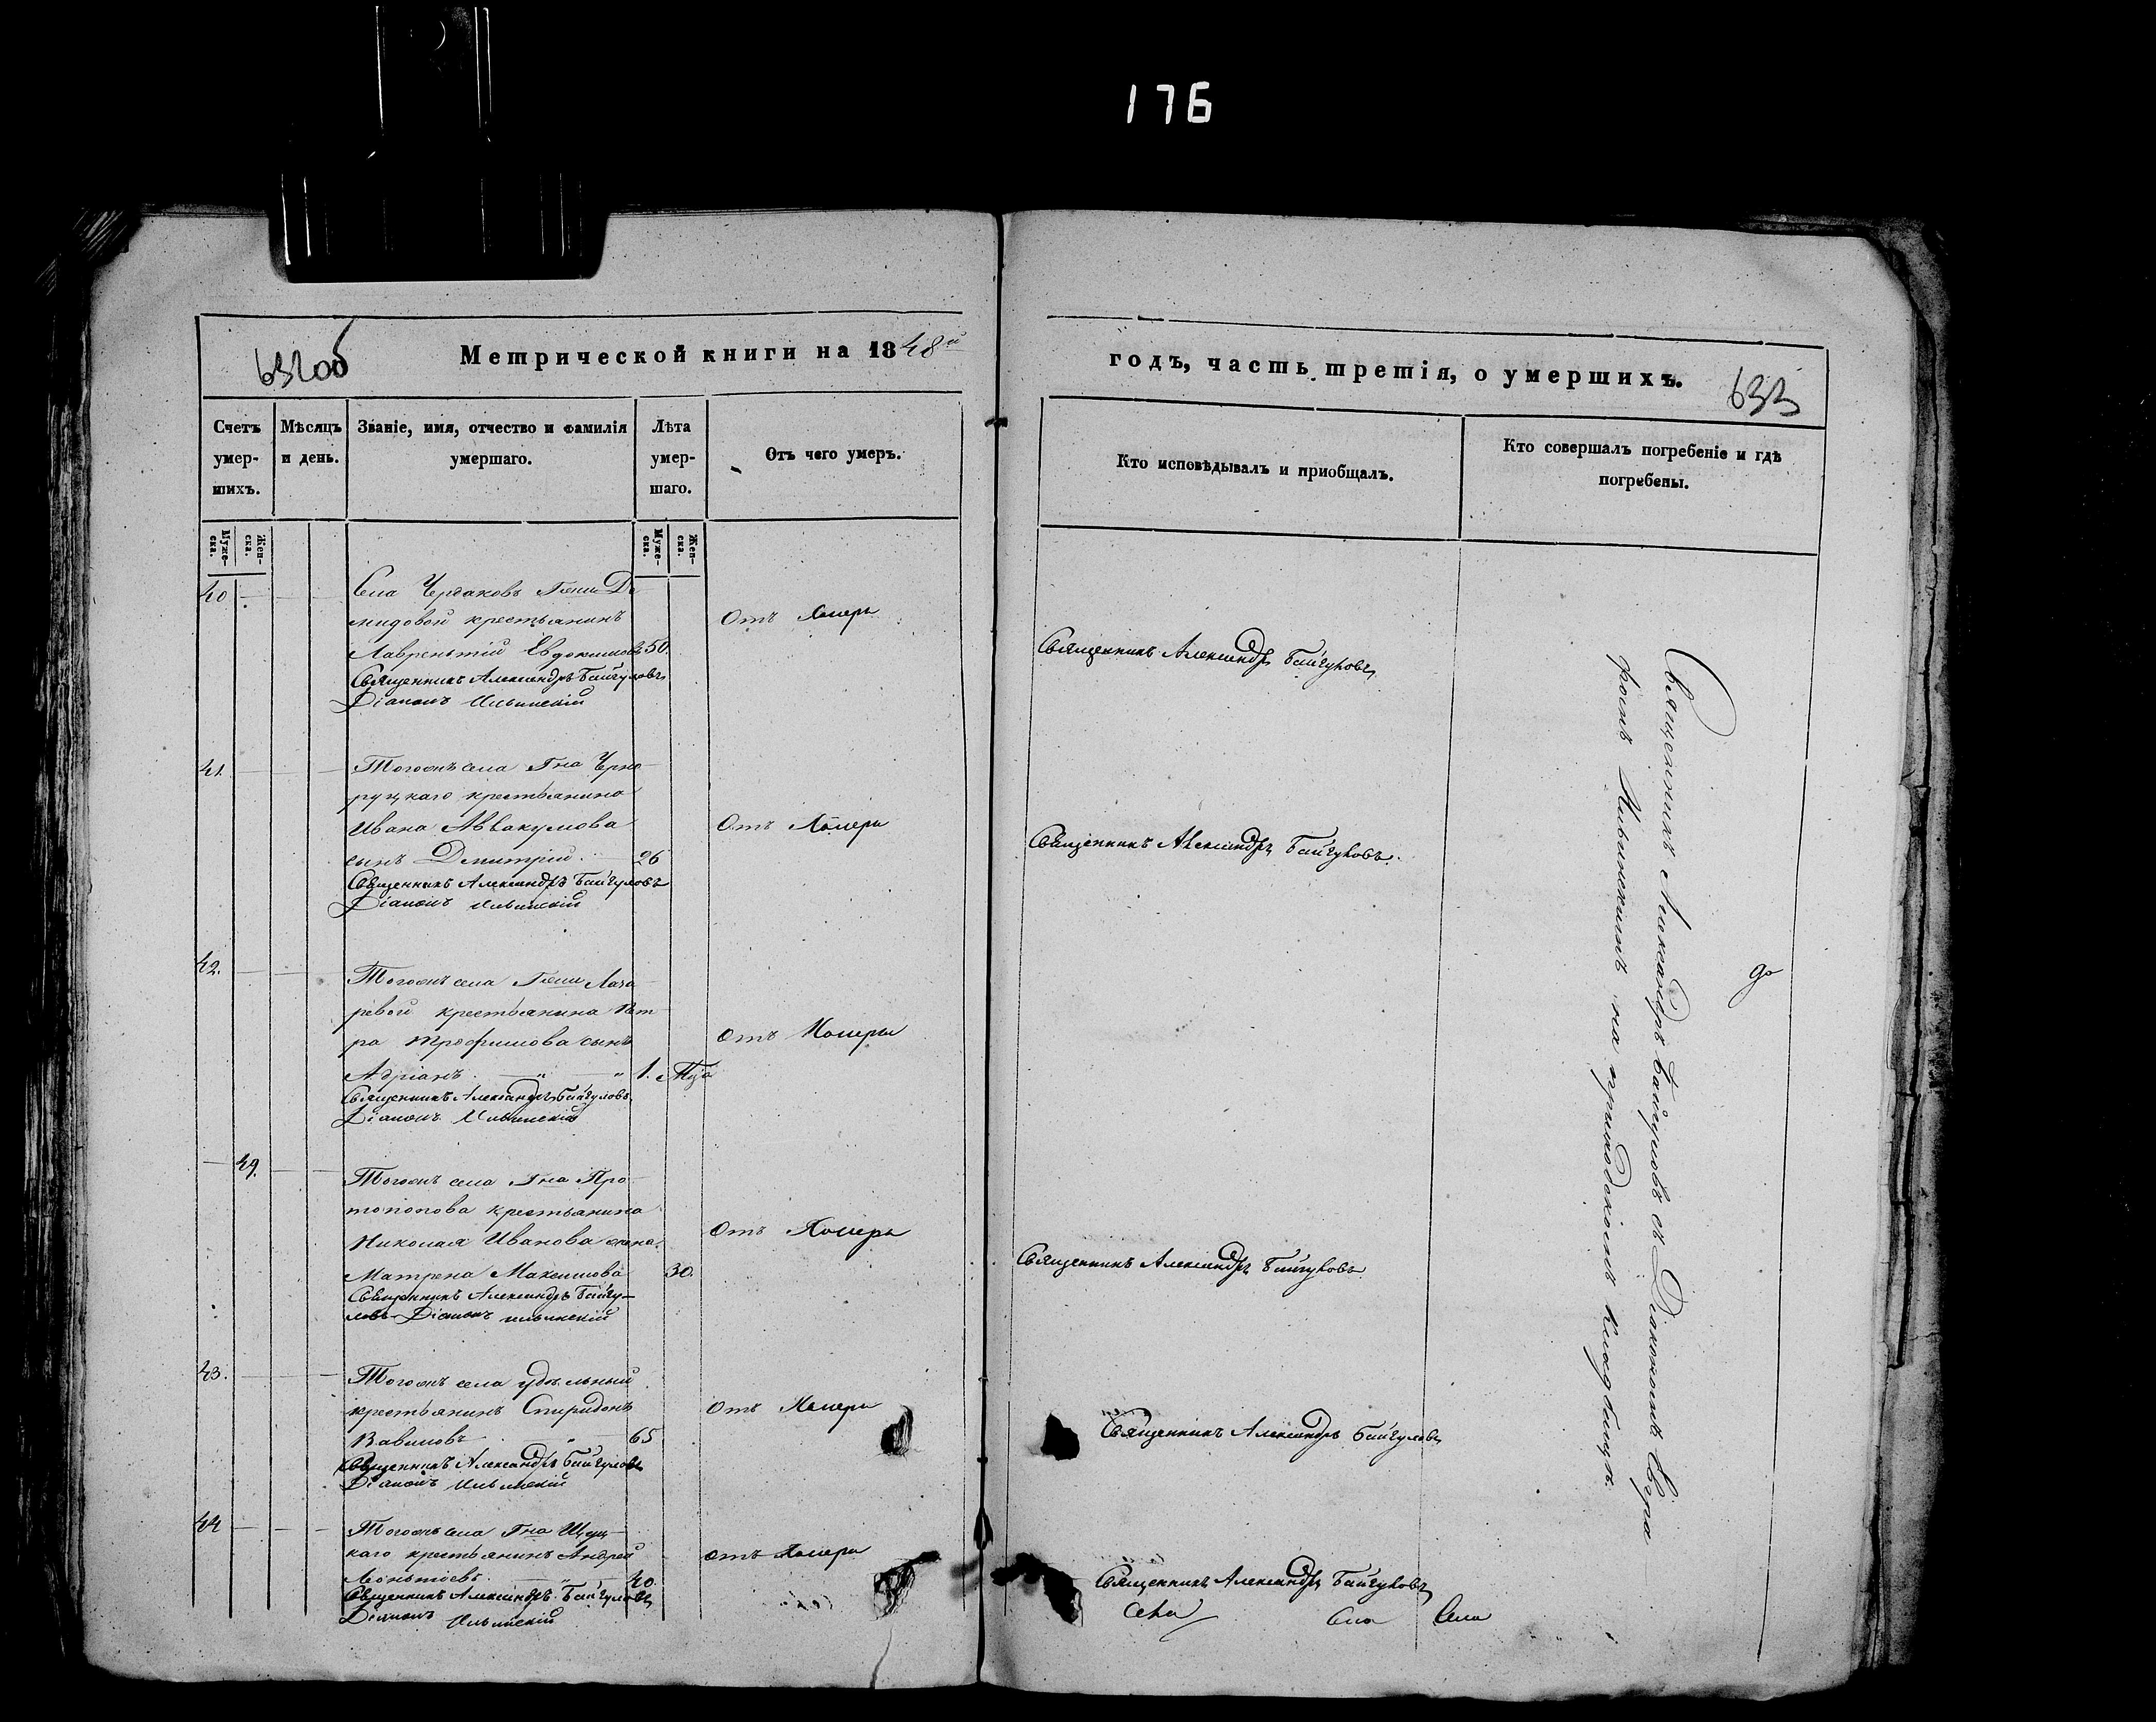 176
632об
Метрической книги на 1848й
годъ, часть третія, о умершихъ.
633
Счетъ умер-шихъ.
Мѣсяцъ и день.
Званіе, имя, отчество и фамилія умершаго.
Лѣта умер-шаго.
Отъ чего умеръ.
Кто исповѣдывалъ и пріобщалъ.
Кто совершалъ погребеніе и гдѣ погребены.
Муже-ска.
Жен-ска.
Муже-ска.
Жен-ска.
40
Села Чердаковъ Гжи Де
мидовой крестьянинъ
Лаврентій Евдокимовъ 50.
Священникъ Александръ Байгуловъ
Діаконъ Ильинскій
Отъ Холеры
Священникъ Александръ Байгуловъ
41.
Тогожъ села Гна Черно
руцкаго крестьянина
Ивана Аввакумова
сынъ Дмитрій. 26
Священникъ Александръ Байгуловъ
Діаконъ Ильинскій
Отъ Холеры
Священникъ Александръ Байгуловъ.
42.
Тогожъ села Гжи Лаза
ревой крестьянина Пет
ра Трофимова сынъ
Адріанъ. 1. Мца
Священникъ Александръ Байгуловъ
Діаконъ Ильинскій
Отъ Холеры
49.
Тогожъ села Гна Про
топопова крестьянина
Николая Иванова жена.
Матрена Максимова 30.
Священникъ Александръ Байгу-
ловъ Діаконъ Ильинскій
Отъ Холеры
Священникъ Александръ Байгуловъ
43.
Тогожъ села удѣльный
крестьянинъ Спиридонъ
Вавиловъ 65
Священникъ Александръ Байгуловъ
Діаконъ Ильинскій
Отъ Холеры
Священникъ Александръ Байгуловъ
44
Тогожъ села Гна
каго крестьянинъ Андрей
Леонтьевъ. 40.
Священникъ Александръ Байгуловъ
Діаконъ Ильинскій
Отъ Холеры
Священникъ Александръ Байгуловъ
Села
Села
Села
Священникъ Александръ Байгуловъ съ Діакономъ Евгра
фомъ Ильинскимъ на приходскомъ кладбищѣ.